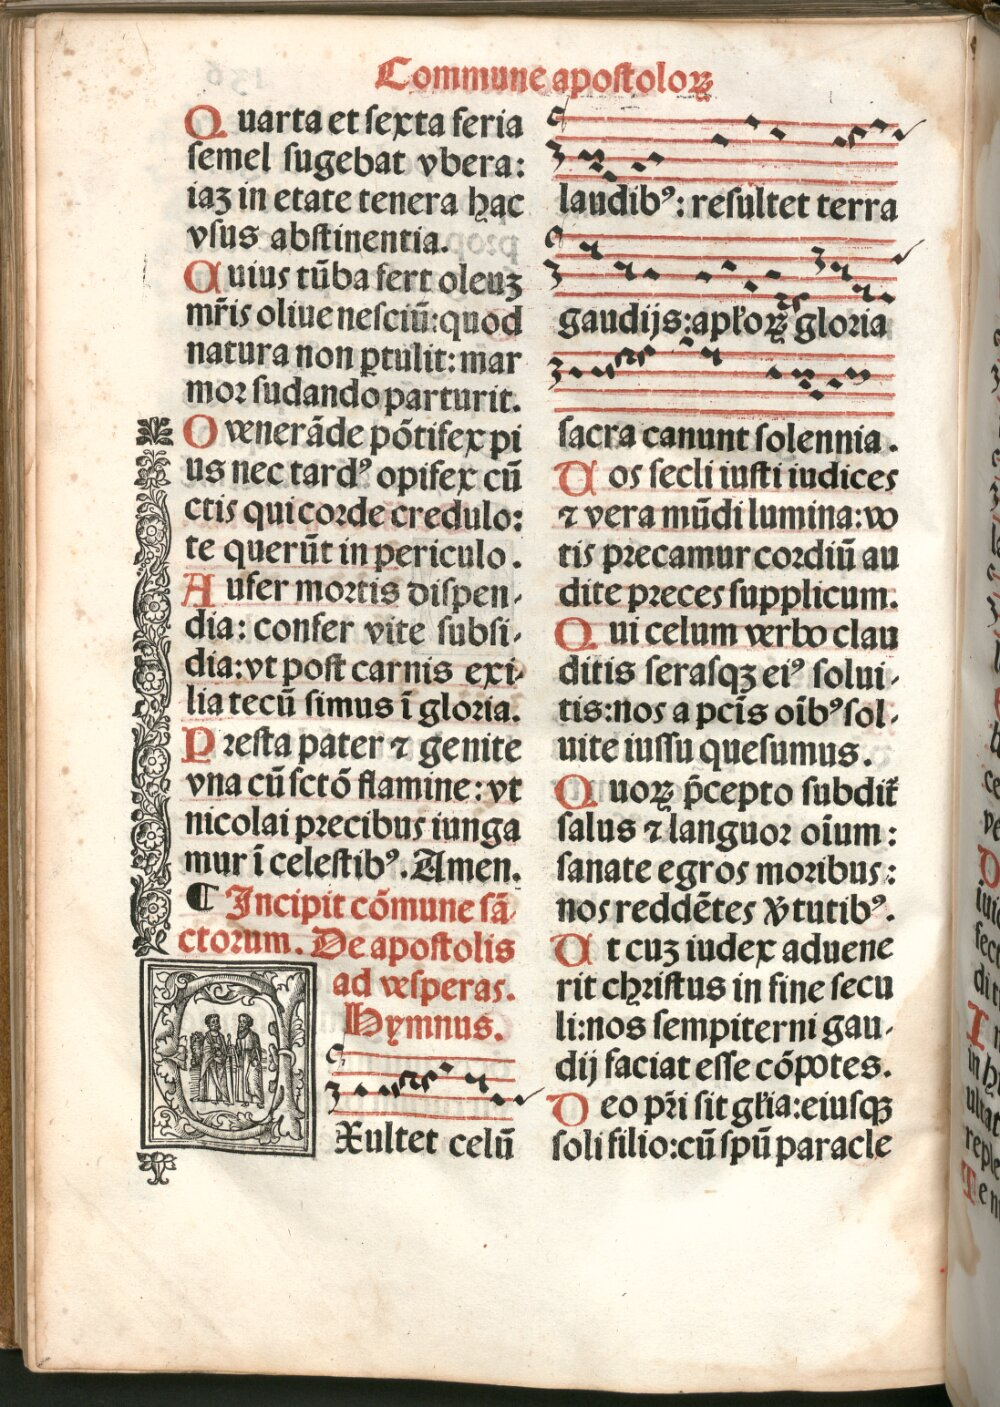 Commune apostoloꝝ
Quarta et sexta feria
semel sugebat vbera:
iaꝫ in etate tenera hac
vsus abstinentia.
Cuius tūba fert oleuꝫ
mr̄is oliue nesciū: quod
natura non ꝑtulit: mar
mor sudando parturit.
O venerāde pōtifex pi
us nec tardꝰ opifex cū
ctis qui corde credulo:
te querūt in periculo.
Aufer mortis dispen-
dia: confer vite subsi-
dia: vt post carnis exi-
lia tecū simus ī gloria.
Presta pater ⁊ genite
vna cū sctō flamine: vt
nicolai precibus iunga
mur ī celestibꝰ. Amen.
¶ Incipit cōmune sā-
ctorum. De apostolis
ad vesperas.
Hymnus.
EXultet celū
laudibꝰ: resultet terra
gaudijs: apl̄oꝝ gloria
sacra canunt solennia.
Uos secli iusti iudices
⁊ vera mūdi lumina: vo
tis precamur cordiū au
dite preces supplicum.
Qui celum verbo clau
ditis serasqꝫ eiꝰ solui-
tis: nos a pctīs oībꝰ sol-
uite iussu quesumus.
Quoꝝ p̄cepto subdit̄
salus ⁊ languor oīum:
sanate egros moribus:
nos reddētes v̓tutibꝰ.
Ut cuꝫ iudex aduene
rit christus in fine secu
li: nos sempiterni gau-
dij faciat esse cōpotes.
Deo pr̄i sit gl̄ia: eiusqꝫ
soli filio: cū spū paracle